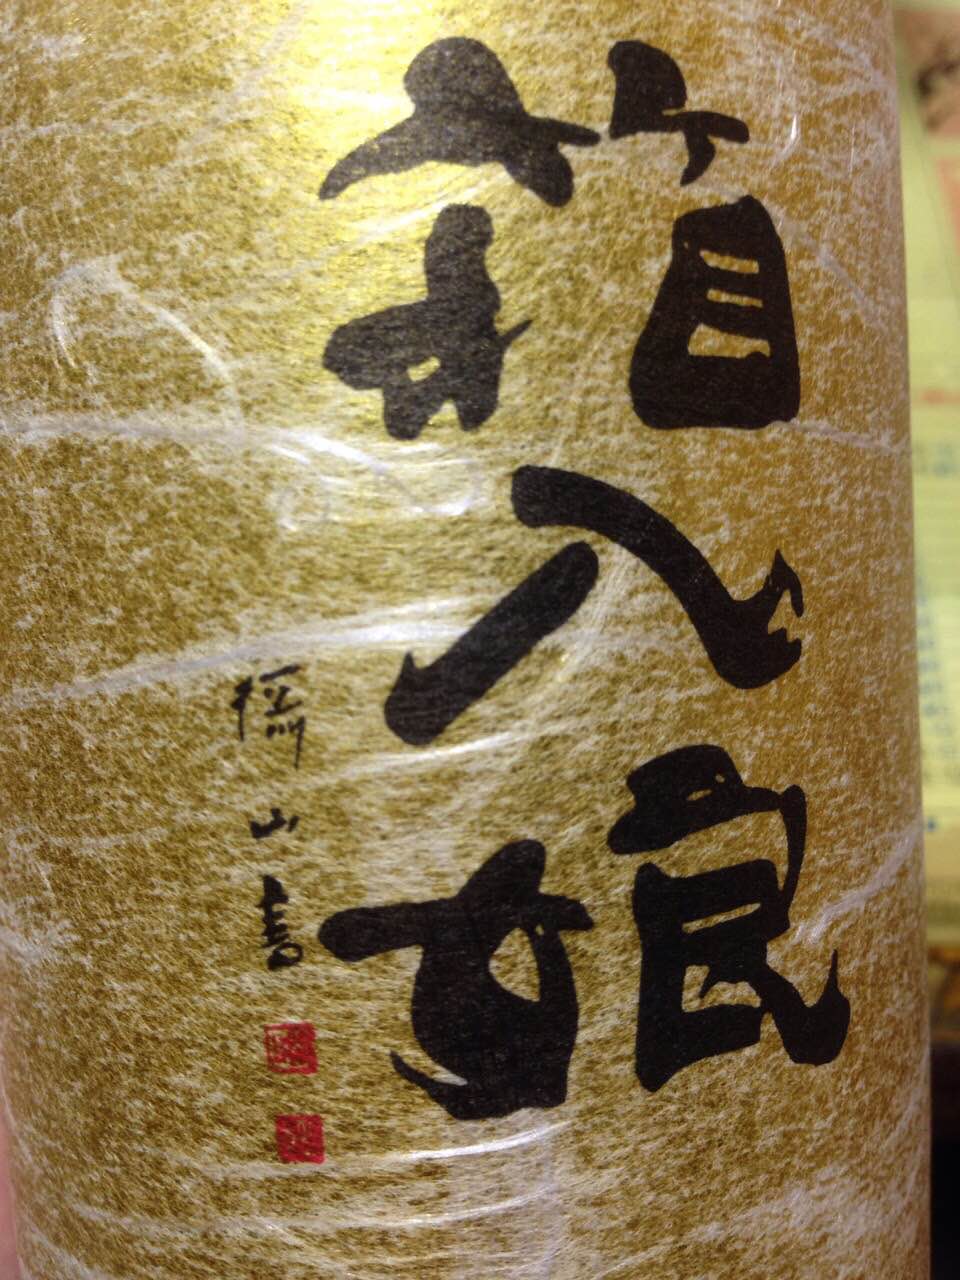 箱入娘
山書